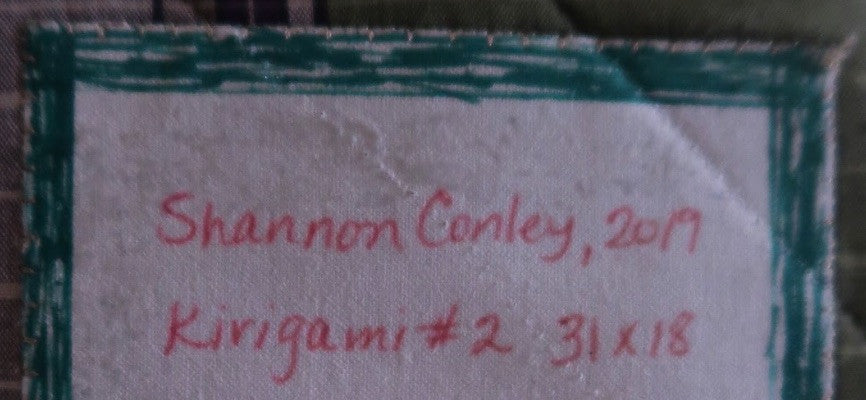 Shannon Conley, 2019
Kirigami #2 31 x 18